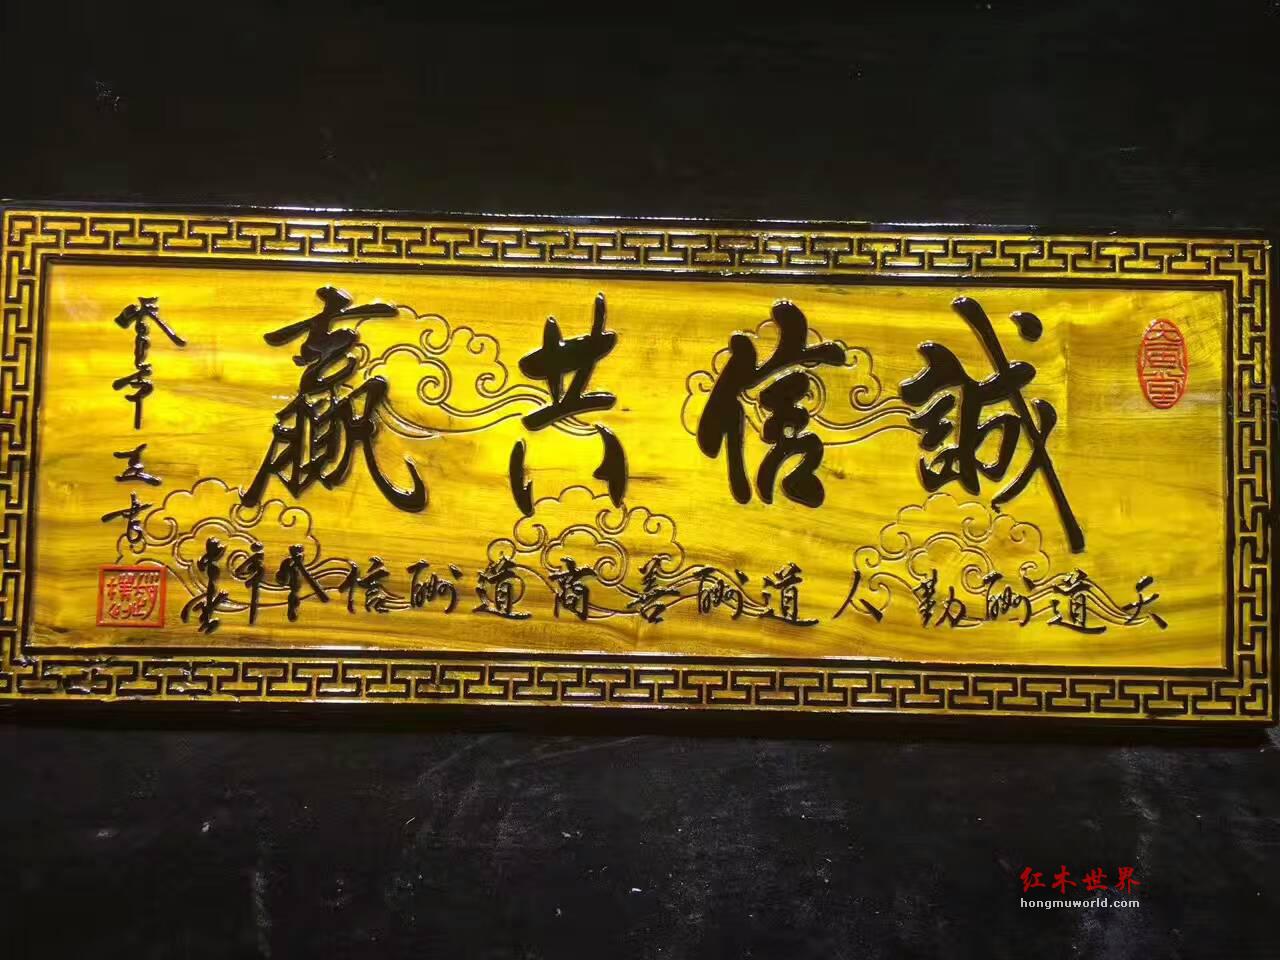 誠信共贏
天道酬勤人道酬善商道酬信
大風堂
红木世界
hongmuworld.com